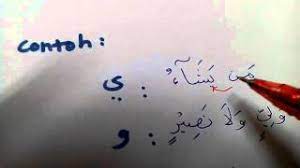 contoh :
مَن يَشَاءُ : ي
وَلِيٍّ وَلَا نَصِيْرٍ : و